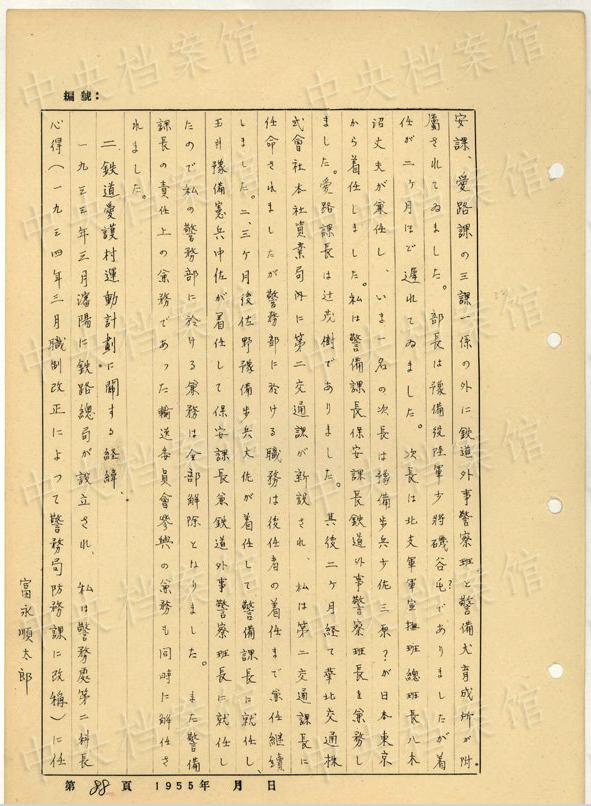 編號：
安課、愛路課の三課一係の外に鉄道外事警察班と警備犬育成所が附
屬されてゐました。部長は豫備役陸軍少將磯谷屯？でありましたが着
任が二ヶ月ほど遲れてゐました。次長は北支軍軍宣撫班總班長八木
沼丈夫が兼任し、いま一名の次長は豫備步兵少佐三原？が日本東京
から着任しました。私は警備課長保安課長鉄道外事警察班長を兼務し
ました。愛路課長は辻茂樹でありました。其後二ヶ月経て華北交通株
式會社本社資業局内に第二交通課が新設され、私は第二交通課長に
任命されましたが警務部に於ける職務は後任者の着任まで兼任継續
しました。二、三ヶ月後佐野豫備步兵大佐が着任して警備課長に就任し
玉井豫備憲兵中佐が着任して保安課長兼鉄道外事警察班長に就任し
たので私の警務部に於ける兼務は全部解除となりました。また警備
課長の責任上の兼務であった輸送委員會參與の兼務も同時に解任さ
れました。
二　鉄道愛護村運動計劃に關する経緯
一九三三年三月瀋陽に鉄路總局が設立され、私は警務處第二科長
心得（一九三四年三月職制改正によって警務局防務課に改稱）に任
富永順太郎
第88頁　1955年　月　日
中央档案馆
中央档案馆
中央档案馆
中央档案馆
中央档案馆
中央档案馆